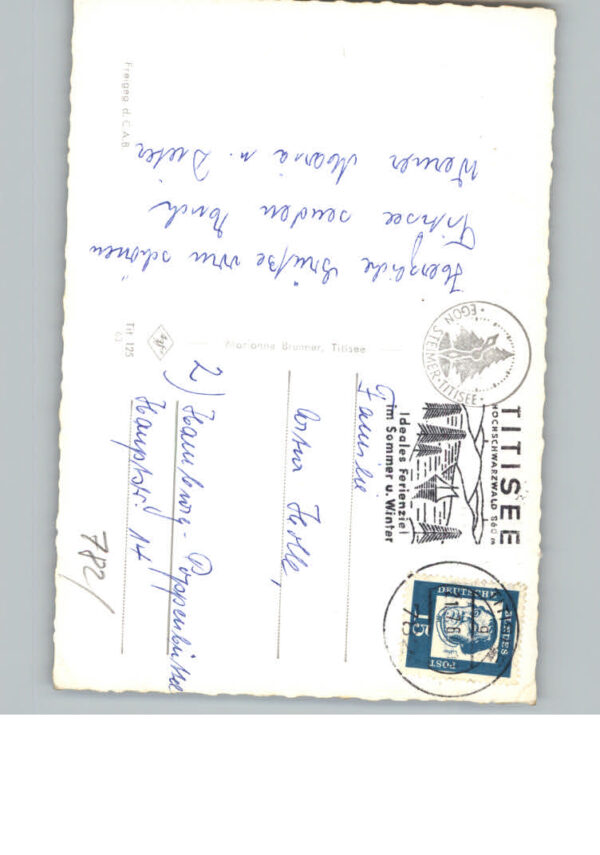 Herzliche Grüße vom schönen
Titisee senden Euch
Werner Maria u. Dieter
Freigeg d. C.A.B
Marianne Brunner, Titisee
Tit 125
63
EGON STEIMER · TITISEE ·
TITISEE
HOCHSCHWARZWALD 860 m
Ideales Ferienziel
im Sommer u. Winter
DEUTSCHE BUNDESPOST
15
Familie
2) Hamburg-Poppenbüttel
Hauptstr. 14
782/